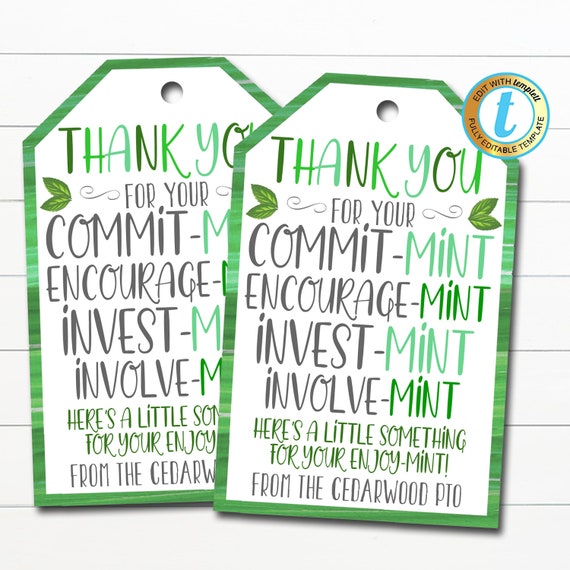 THANK YOU
FOR YOUR
COMMIT-M
ENCOURAGE-
INVEST-M
INVOLVE-M
HERE'S A LITTLE SOM
FOR YOUR ENJOY-
FROM THE CEDARWOOD P
THANK YOU
FOR YOUR
COMMIT-MINT
ENCOURAGE-MINT
INVEST-MINT
INVOLVE-MINT
HERE'S A LITTLE SOMETHING
FOR YOUR ENJOY-MINT!
FROM THE CEDARWOOD PTO
EDIT WITH templett
t
FULLY EDITABLE TEMPLATE